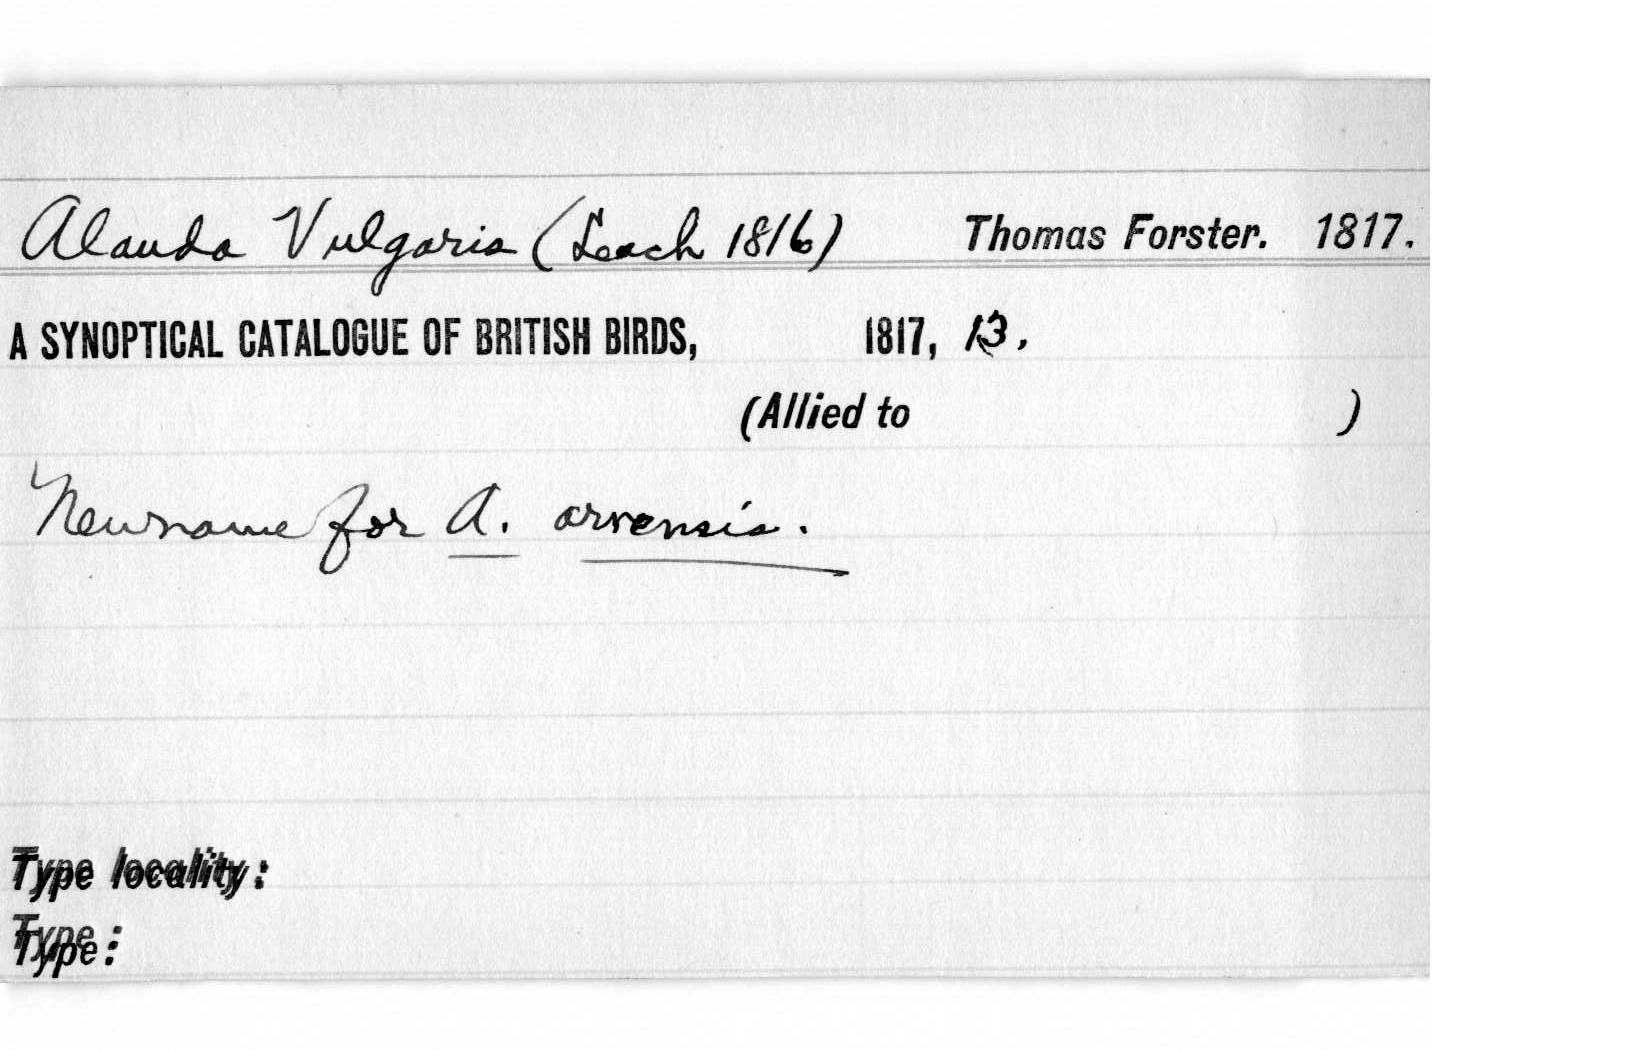 Alauda Vulgaris (Leach 1816) Thomas Forster. 1817.
A SYNOPTICAL CATALOGUE OF BRITISH BIRDS, 1817, 13.
(Allied to )
New name for A. arvensis.
Type locality:
Type: